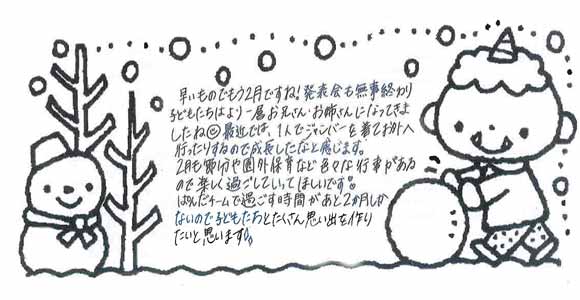 早いものでもう2月ですね!発表会も無事終わり
子どもたちはより一層お兄さん・お姉さんになってきま
したね☺最近では、1人でジャンパーを着てお外へ
行ったりするので成長したなと感じます。
2月も節分や園外保育など色々な行事がある
ので楽しく過ごしていってほしいです。
ぱんだチームで過ごす時間があと2か月しか
ないので子どもたちとたくさん思い出を作り
たいと思います。